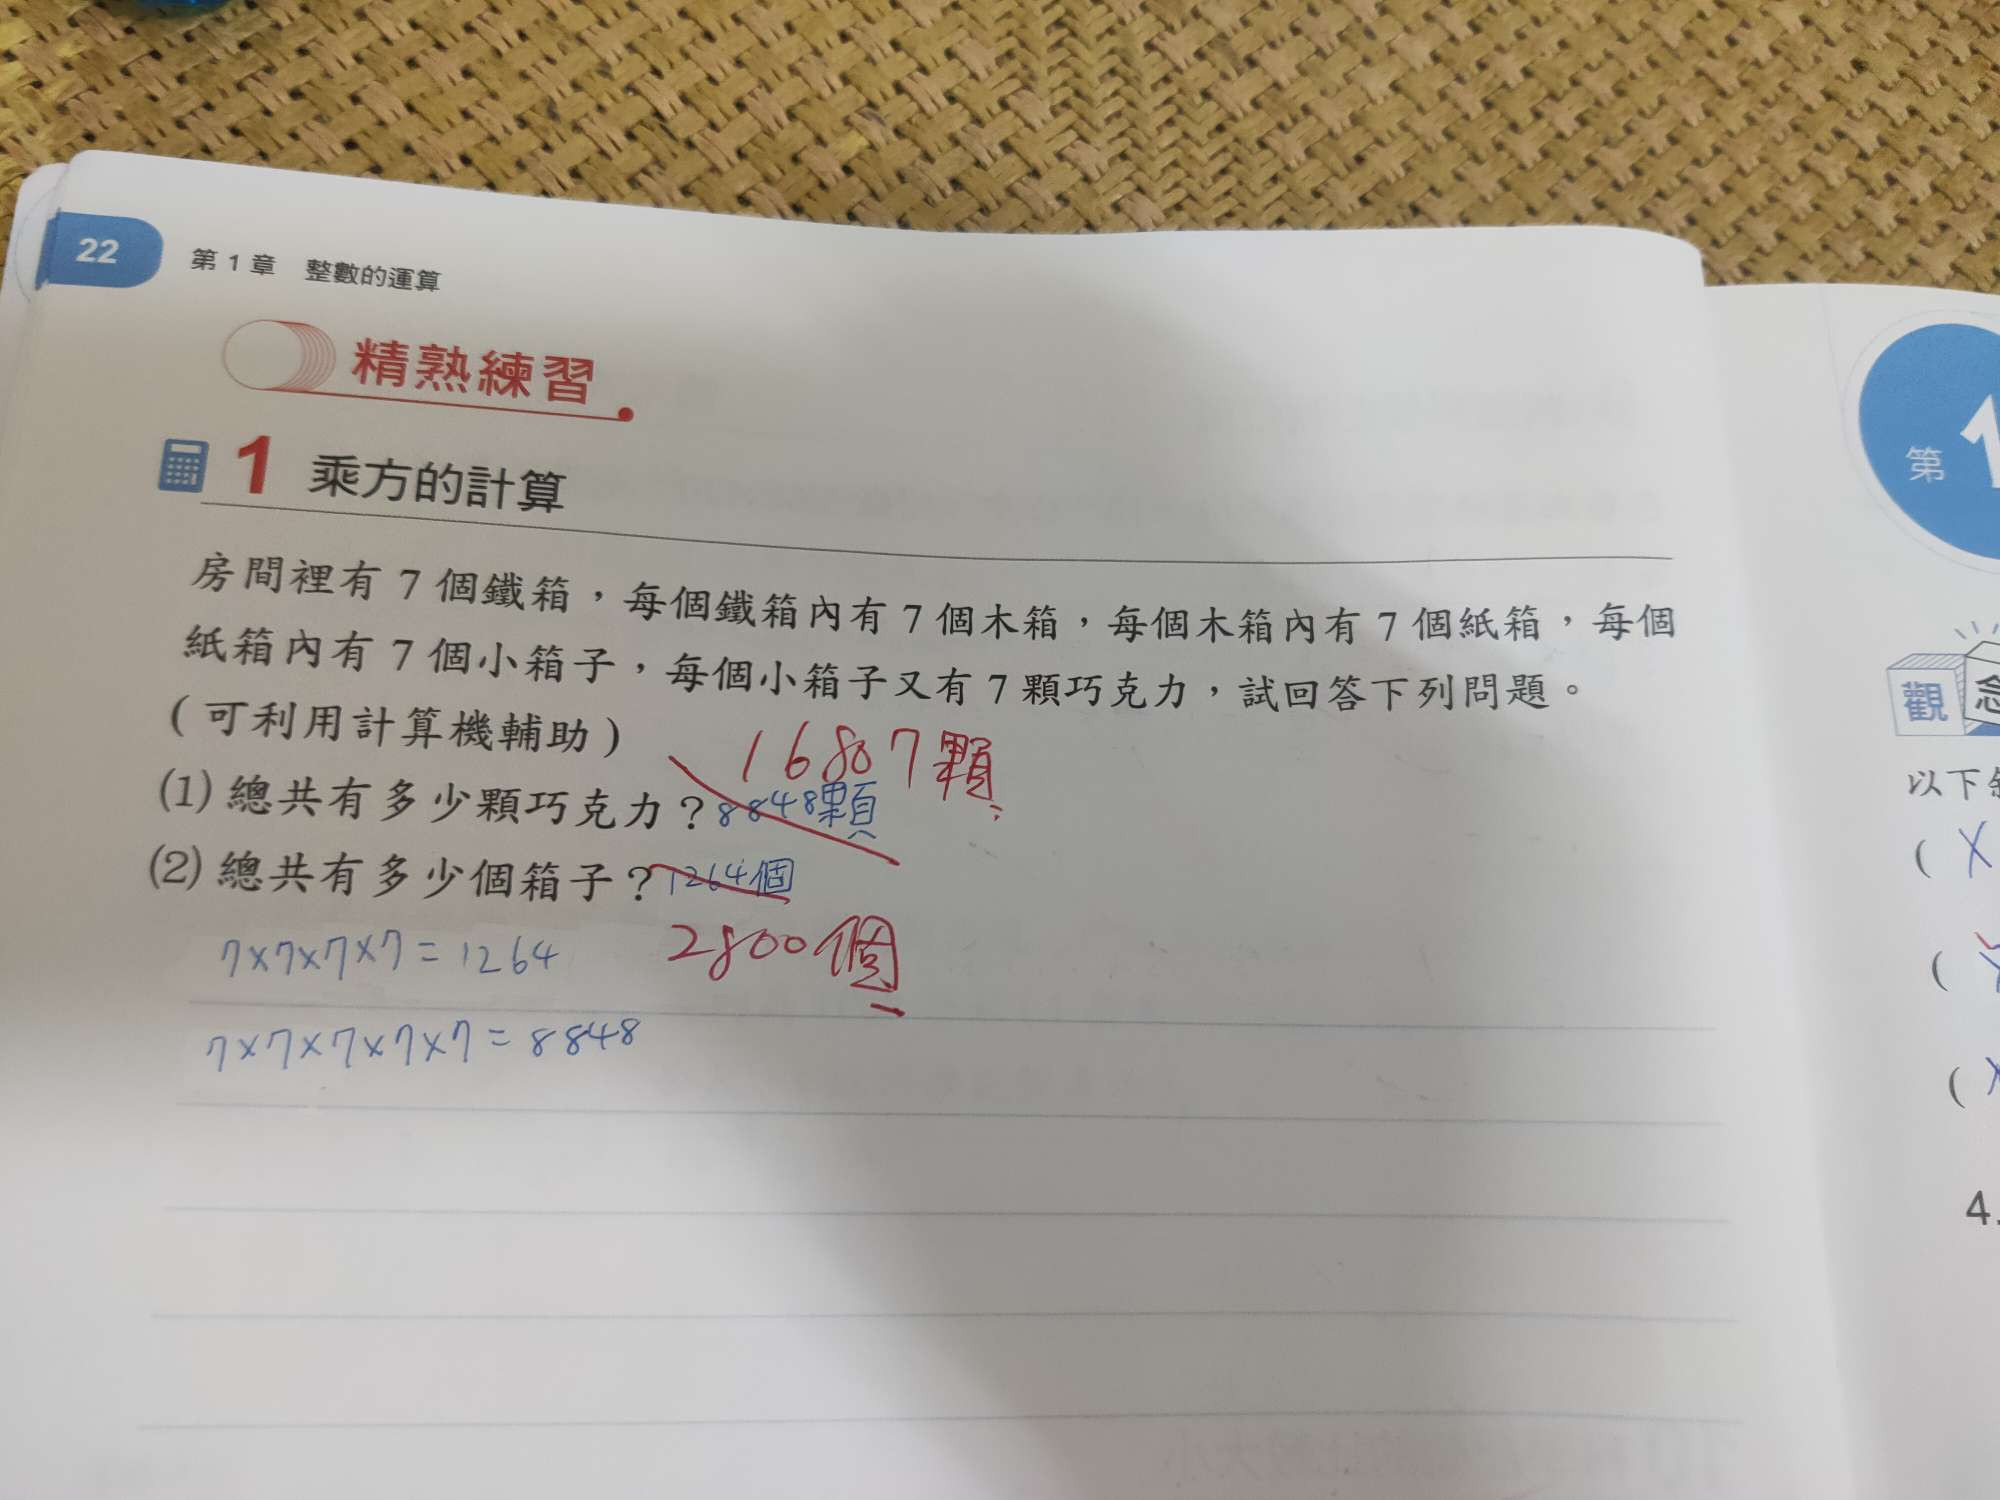 22 第 1 章 整數的運算
精熟練習
1 乘方的計算
房間裡有 7 個鐵箱，每個鐵箱內有 7 個木箱，每個木箱內有 7 個紙箱，每個
紙箱內有 7 個小箱子，每個小箱子又有 7 顆巧克力，試回答下列問題。
(可利用計算機輔助)
16807顆
(1) 總共有多少顆巧克力？8848顆
(2) 總共有多少個箱子？1264個
2800個
7×7×7×7=1264
7×7×7×7×7=8848
第 1
觀念
以下
( X
(
( X
4.